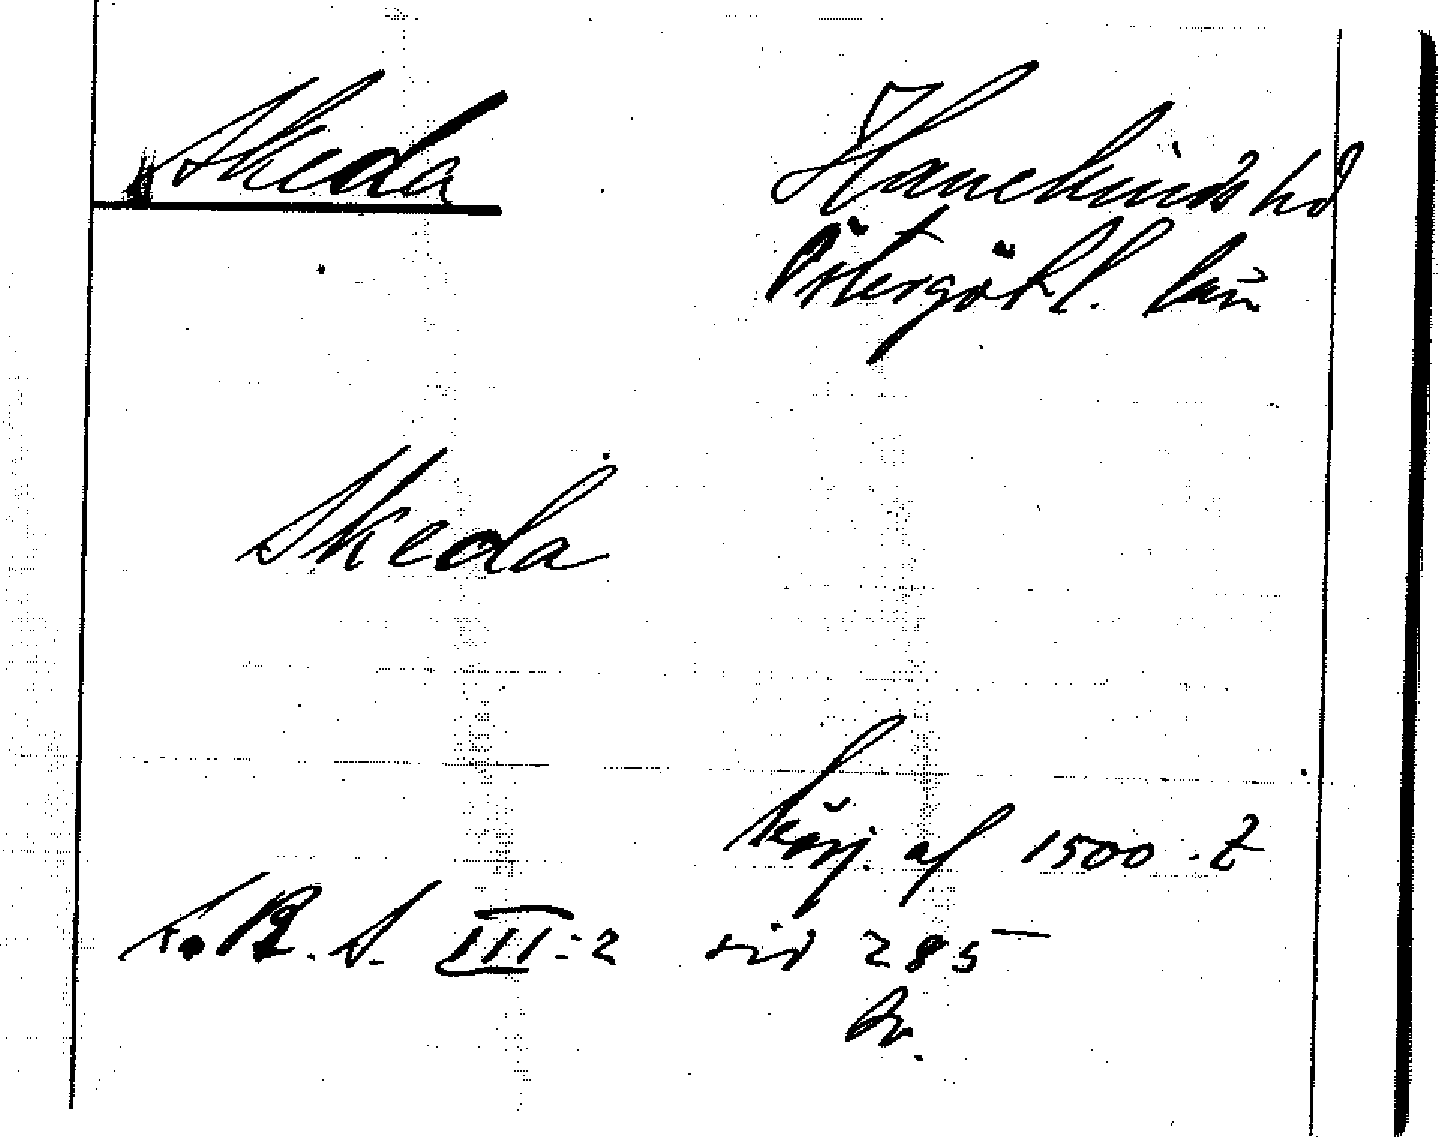 Skeda Hanekinds hd
Östergötl. län
Skeda
börj. af 1500. t
S. R. S. III:2 sid 285
Br.